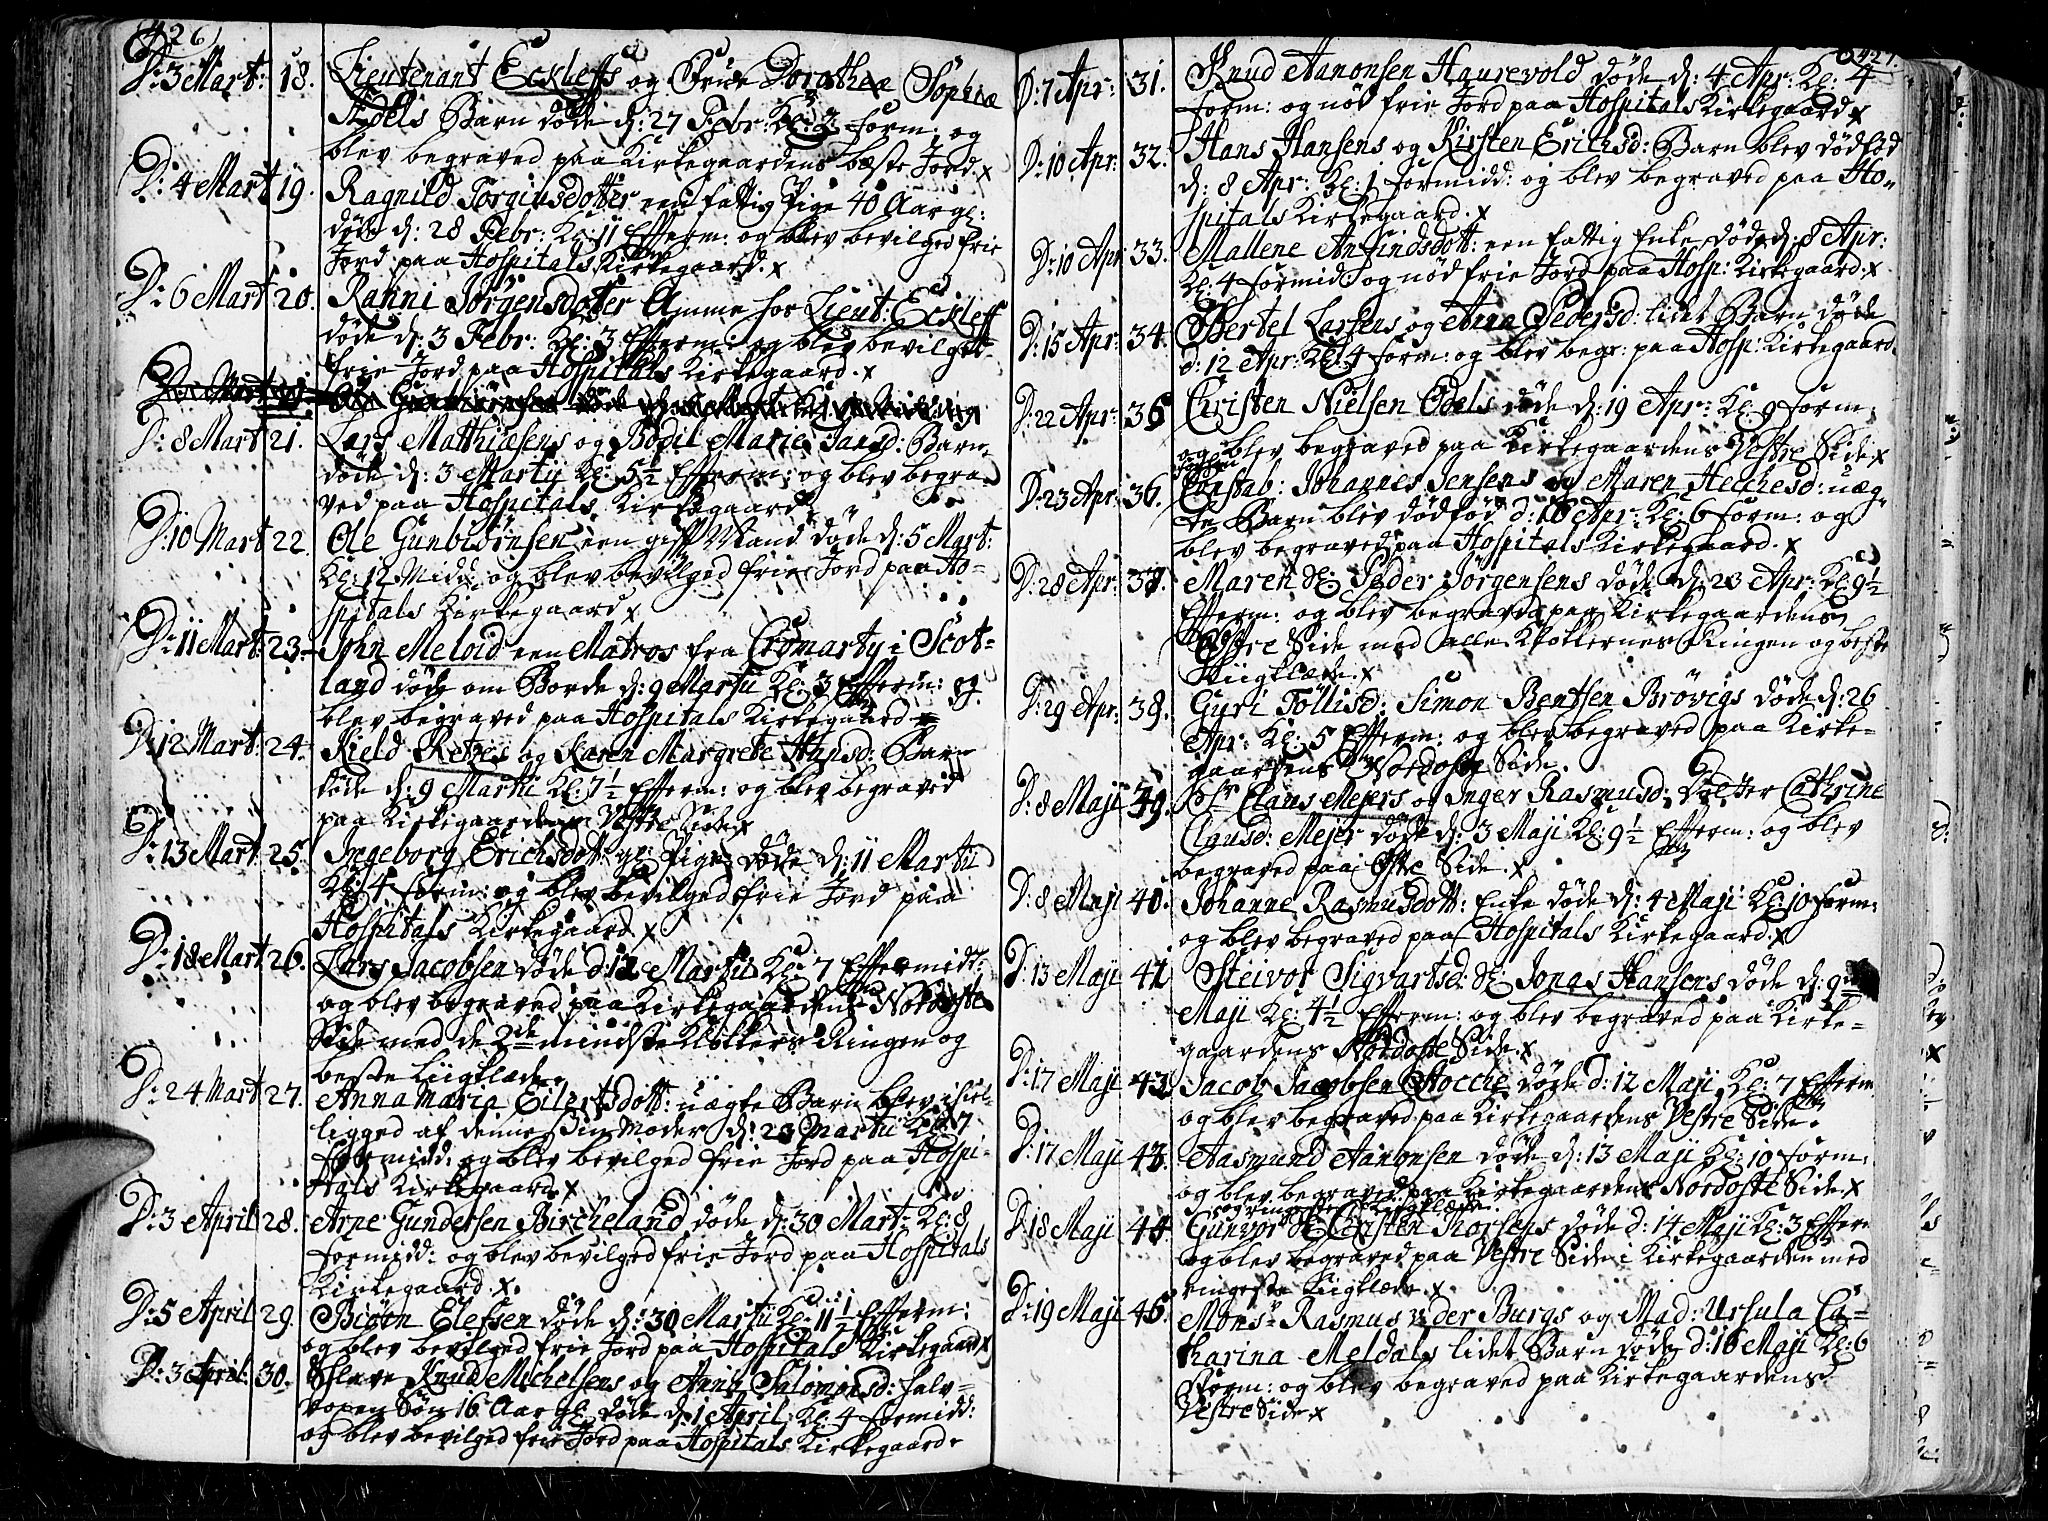 426
D: 3 Mart: 18. Lieutenant Eckleffs og Frue Dorotheæ Sophiæ
Adels Barn døde d: 27 Febr: Kl: 3 form: og
blev begraved paa Kirkegaardens beste Jord. x
D: 4 Mart 19. Ragnild Torgiusdotter een fattig Pige 40 Aar gl:
døde d: 28 Febr: Kl: 11 Efterm: og blev bevilged frie
Jord paa Hospitals Kirkegaard. x
D: 6 Mart 20. Ranni Jörgensdotter Amme hos Lieut: Eckleff
døde d: 3 Febr: Kl: 3 Efterm: og blev bevilget
frie Jord paa Hospitals Kirkegaard. x
D: 8 Mart 21. Lars Matthiæsens og Bodil Marie Jansd: Barn
døde d: 3 Martij Kl: 5½ Efterm: og blev begra-
ved paa Hospitals Kirkegaard
D: 10 Mart 22. Ole Gunbiörnsen een gift Mand døde d: 5 Mart:
Kl: 12 Midd: og blev bevilged frie Jord paa Ho-
spitals Kirkegaard x
D: 11 Mart: 23. John Meloid een Matros fra Cromarty i Scot-
land døde om Borde d: 9 Martii Kl: 3 Efterm: og
blev begraved paa Hospitals Kirkegaard
D: 12 Mart: 24. Kield Retzes og Karen Margrete Hansd: Barn
døde d: 9 Martii Kl: 7½ Efterm: og blev begraved
paa Kirkegaardens Vestre Side x
D: 13 Mart: 25. Ingeborg Erichsdott: gl: Pige døde d: 11 Martii
Kl: 4 form: og blev bevilged frie Jord paa
Hospitals Kirkegaard x
D: 18 Mart 26. Lars Jacobsen døde d: 12 Martii Kl: 7 Eftermidt:
og blev begraved paa Kirkegaardens Nordoste
Side med de 2de mindste Klokkers Ringen og
beste Liigklæde.
D: 24 Mart 27. Anna Maria Eilertsdott: uægte Barn blev ihiel-
ligged af dennes Moder d: 23 Martii Kl: 7
formidd: og blev bevilged frie Jord paa Hospi-
tals Kirkegaard x
D: 3 April 28. Arne Gundersen Bircheland døde d: 30 Mart: Kl: 8
formidd: og blev bevilged frie Jord paa Hospitals
Kirkegaard. x
D: 5 April 29. Biörn Elefsen døde d: 30 Martii Kl: 11½ Efterm:
og blev bevilged frie Jord paa Hospitals Kirkegaard x
D: 3 April: 30. Slave Knud Michelsens og Anne Salomonsd: halv-
voxen Søn 16 Aar gl: døde d: 1 April: Kl: 4 formidd:
og blev bevilged frie Jord paa Hospitals Kirkegaard.
427.
D: 7 Apr: 31. Knud Aanonsen Haurevold døde d: 4 Apr: Kl: 4
form: og nød frie Jord paa Hospitals Kirkegaard x
D: 10 Apr: 32. Hans Hansens og Kirsten Erichsd: Barn blev dødfød
d: 8 Apr: Kl: 1 formidd: og blev begraved paa Ho-
spitals Kirkegaard. x
D: 10 Apr 33. Mallene Anfindsdott: een fattig Enke døde d: 8 Apr:
Kl: 4 formid: og nød frie Jord paa Hosp: Kirkegaard. x
D: 15 Apr: 34. Bertel Larsens og Anna Pedersd: lidet Barn døde
d: 12 Apr: Kl: 4 form: og blev begr: paa Hosp: Kirkegaard.
D: 22 Apr: 35 Christen Nielsen Odels døde d: 19 Apr: Kl: 9 form:
og blev begraved paa Kirkegaardens Vestre Side x
D: 23 Apr: 36. Constab: Johannes Jensens og Maren Hechesd: uæg-
te Barn blev dødfød d: 16 Apr: Kl: 6 form: og
blev begraved paa Hospitals Kirkegaard. x
D: 28 Apr: 37. Maren Sl: Peder Jörgensens døde d: 23 Apr: Kl: 9½
Efterm: og blev begraved paa Kirkegaardens
Østre Side med alle Klokkernes Ringen og beste
Liigklæde. x
D: 29 Apr: 38. Gyri Töllisd: Simon Bentsen Brövigs døde d: 26
Apr: Kl: 5 Efterm: og blev begraved paa Kirke-
gaardens Nordoste Side.
D: 8 Maji 39. Hr Claus Mejers og Inger Rasmusd: Datter Cathrine
Clausd: Mejer døde d: 3 Maji Kl: 9½ Efterm: og blev
begraved paa Østre Side. x
D: 8 Maji 40. Johanne Rasmusdott: Enke døde d: 4 Maji Kl: 10 form:
og blev begraved paa Hospitals Kirkegaard. x
D: 13 Maji 41 Steivor Sigvartsd: Sl: Jonas Hansens døde d: 9de
Maji Kl: 4½ Efterm: og blev begraved paa Kirke-
gaardens Nordoste Side. x
D: 17 Maji 42 Jacob Jacobsen Stocche døde d: 12 Maji Kl: 7 Efterm
og blev begraved paa Kirkegaardens Vestre Side.
D: 17 Maji 43. Aasmund Aanonsen døde d: 13 Maji Kl: 10 form:
og blev begraved paa Kirkegaardens Nordoste Side. x
og ringeste Liigklæde.
D: 18 Maji 44 Gunvor Sl: Christen Thorsens døde d: 14 Maji Kl: 3 Efterm
og blev begraved paa Vestre Side i Kirkegaarden med
ringeste Liigklæde. x
D: 19 Maji 45. Monsr Rasmus v: der Burgs og Mad: Ursula Ca-
tharina Meldals lidet Barn døde d: 16 Maji Kl: 6
form: og blev begraved paa Kirkegaardens
Vestre Side x